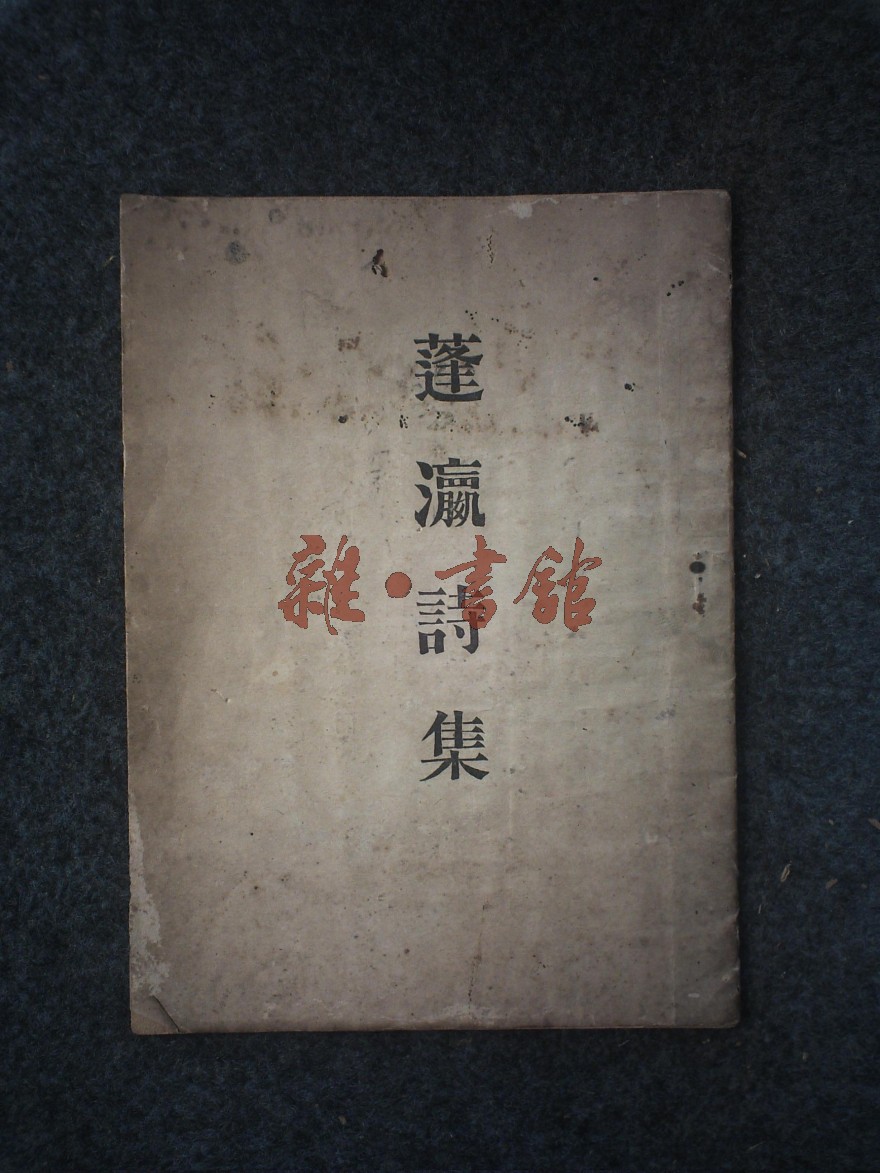 蓬瀛詩集
雜·書館